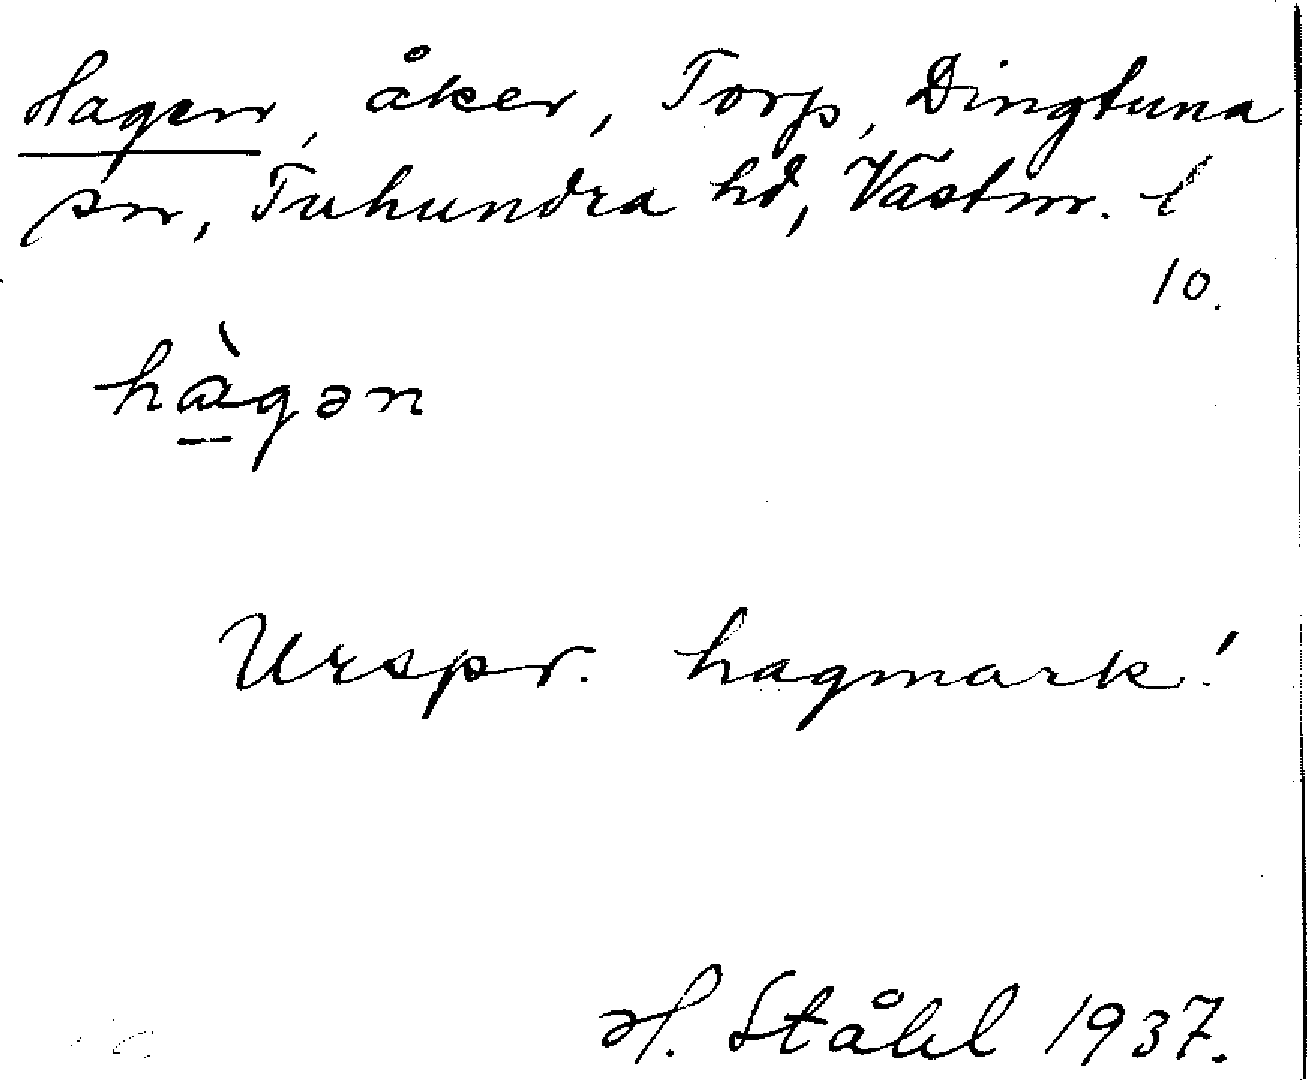 Hagen, åker, Torp, Dingtuna
sn, Tuhundra hd, Västm. l
10.
hàgən
Urspr. hagmark!
H. Ståhl 1937.